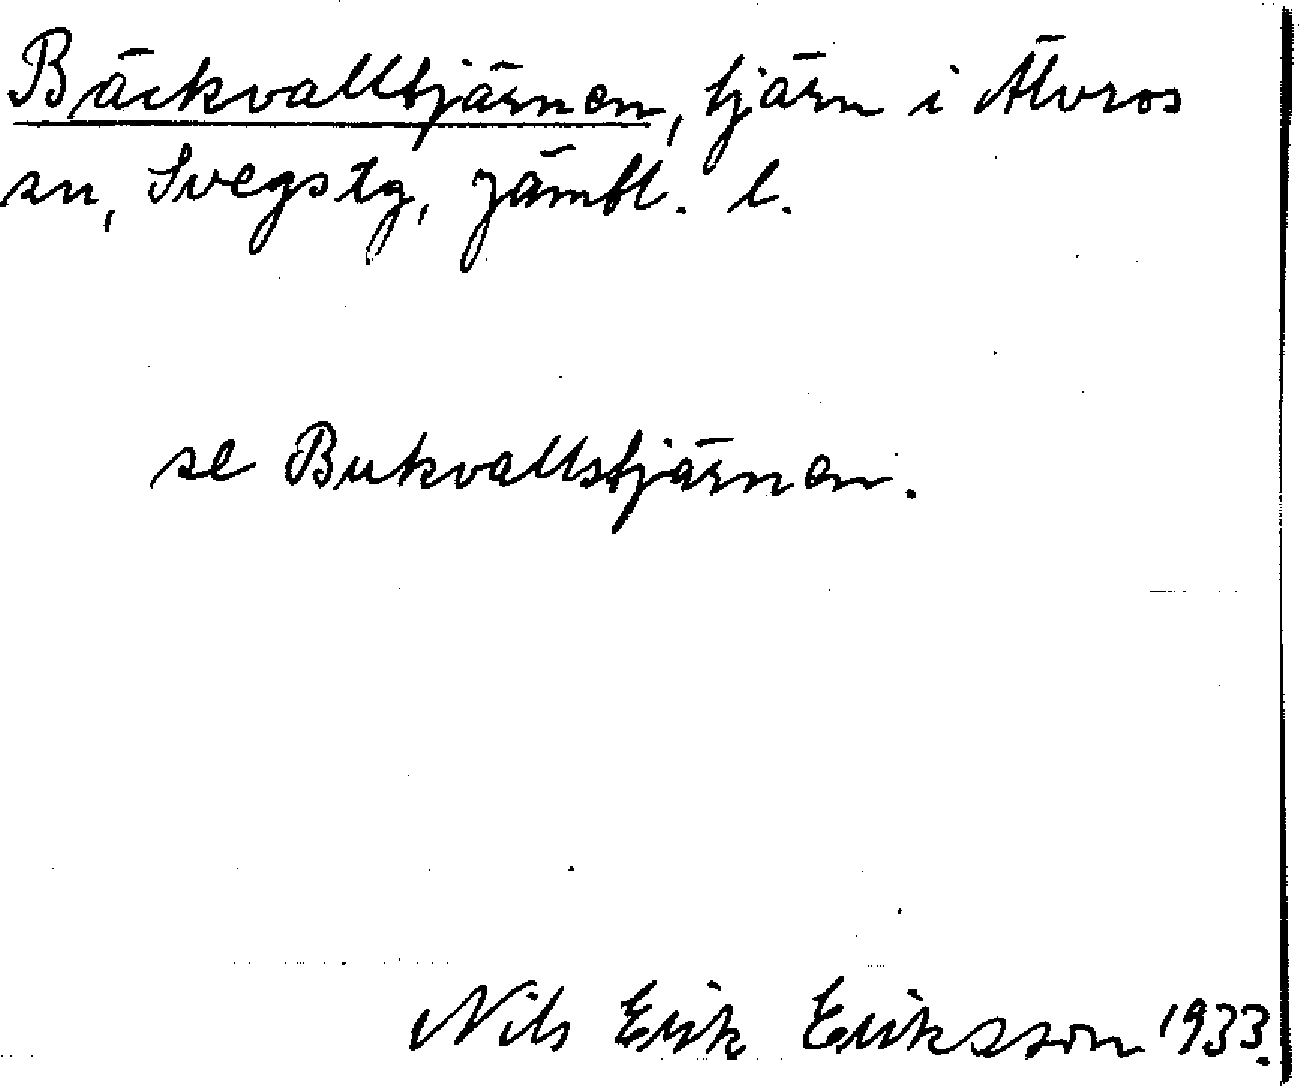 Bäckvalltjärnen, tjärn i Älvros
sn, Svegs tg, Jämtl. l.
se Bukvallstjärnen.
Nils Erik Eriksson 1933.